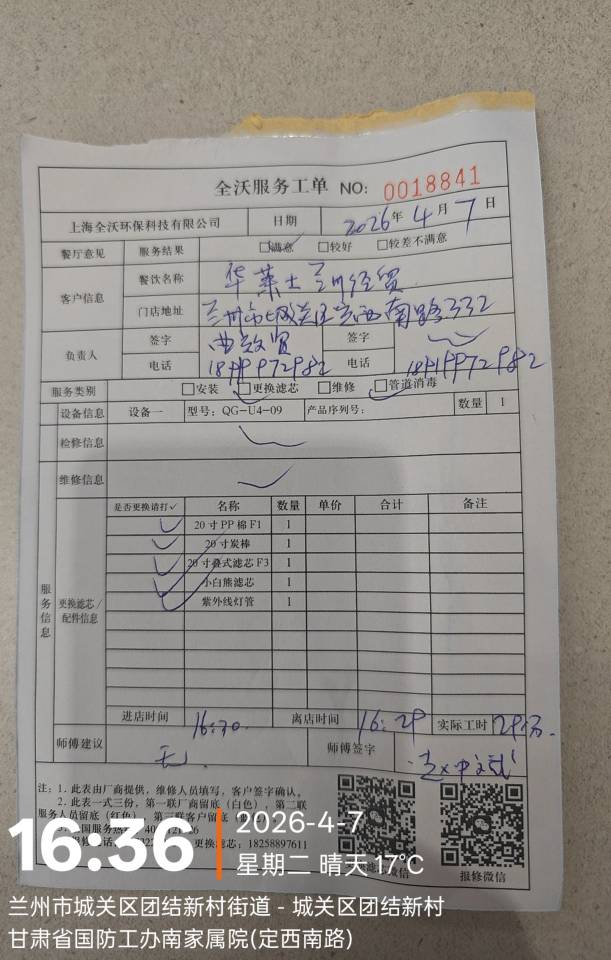 全沃服务工单 NO: 0018841
上海全沃环保科技有限公司 日期 2026年 4月 7日
餐厅意见 服务结果 □满意 □较好 □较差不满意
客户信息 餐饮名称 华莱士兰州经贸
门店地址 兰州市城关区定西南路332
负责人 签字 签字
电话 电话
服务类别 □安装 □更换滤芯 □维修 □管道消毒
设备信息 设备一 型号: QG-U4-09 产品序列号: 数量 1
检修信息
维修信息
服务信息
更换滤芯/配件信息
是否更换请打✓ 名称 数量 单价 合计 备注
✓ 20寸PP棉F1 1
✓ 20寸炭棒 1
✓ 20寸叠式滤芯F3 1
✓ 小白熊滤芯 1
✓ 紫外线灯管 1
进店时间 离店时间 16:29 实际工时 29分.
师傅建议 无. 师傅签字
注: 1. 此表由厂商提供, 维修人员填写, 客户签字确认。
2. 此表一式三份, 第一联厂商留底 (白色), 第二联
服务人员留底 (红色), 第三联客户留底
更换滤芯: 18258897611
报修微信
16:36
2026-4-7
星期二 晴天 17℃
兰州市城关区团结新村街道 - 城关区团结新村
甘肃省国防工办南家属院(定西南路)